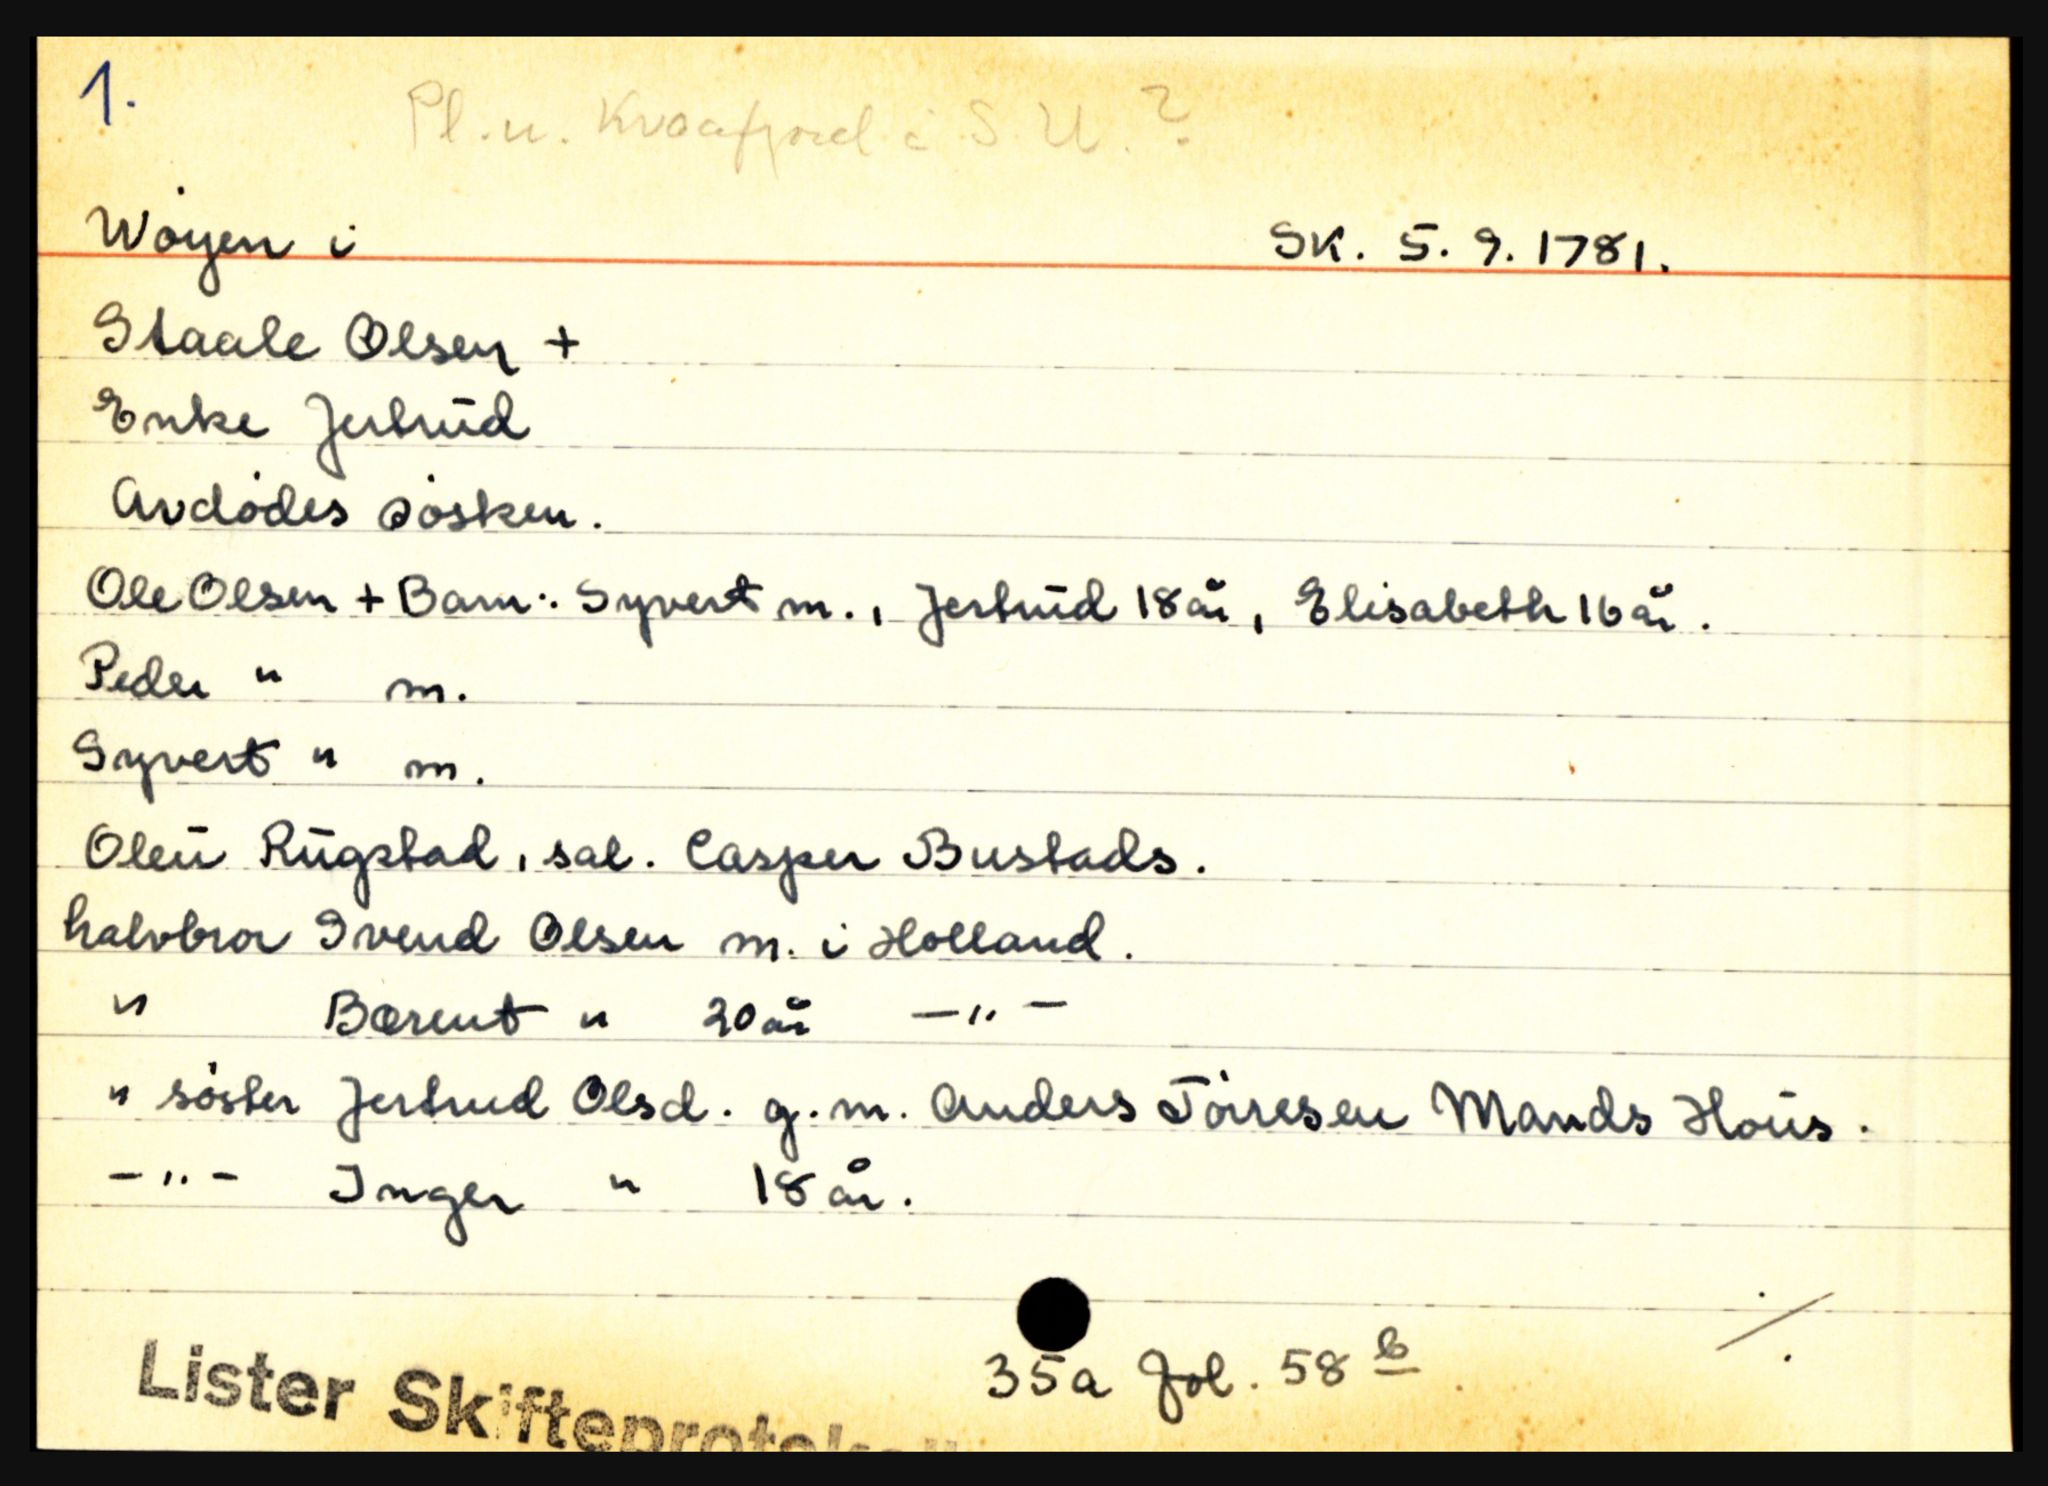 1.
Pl. u. Kvaafjord i S. U. ?
Wøyen i SK. 5. 9. 1781.
Staale Olsen +
Enke Jertrud
Avdødes søsken.
Ole Olsen + Barn: Syvert m., Jertrud 18 år, Elisabeth 16 år.
Peder " m.
Syvert " m.
Oleu Rugstad, sal. Casper Bustads.
halvbror Svend Olsen m. i Holland.
" Bærent " 20 år —"—
" søster Jertrud Olsd. g. m. Anders Tørresen Mands Hous.
—"— Inger " 18 år.
35a fol. 58 b
Lister Skifteprotokoll